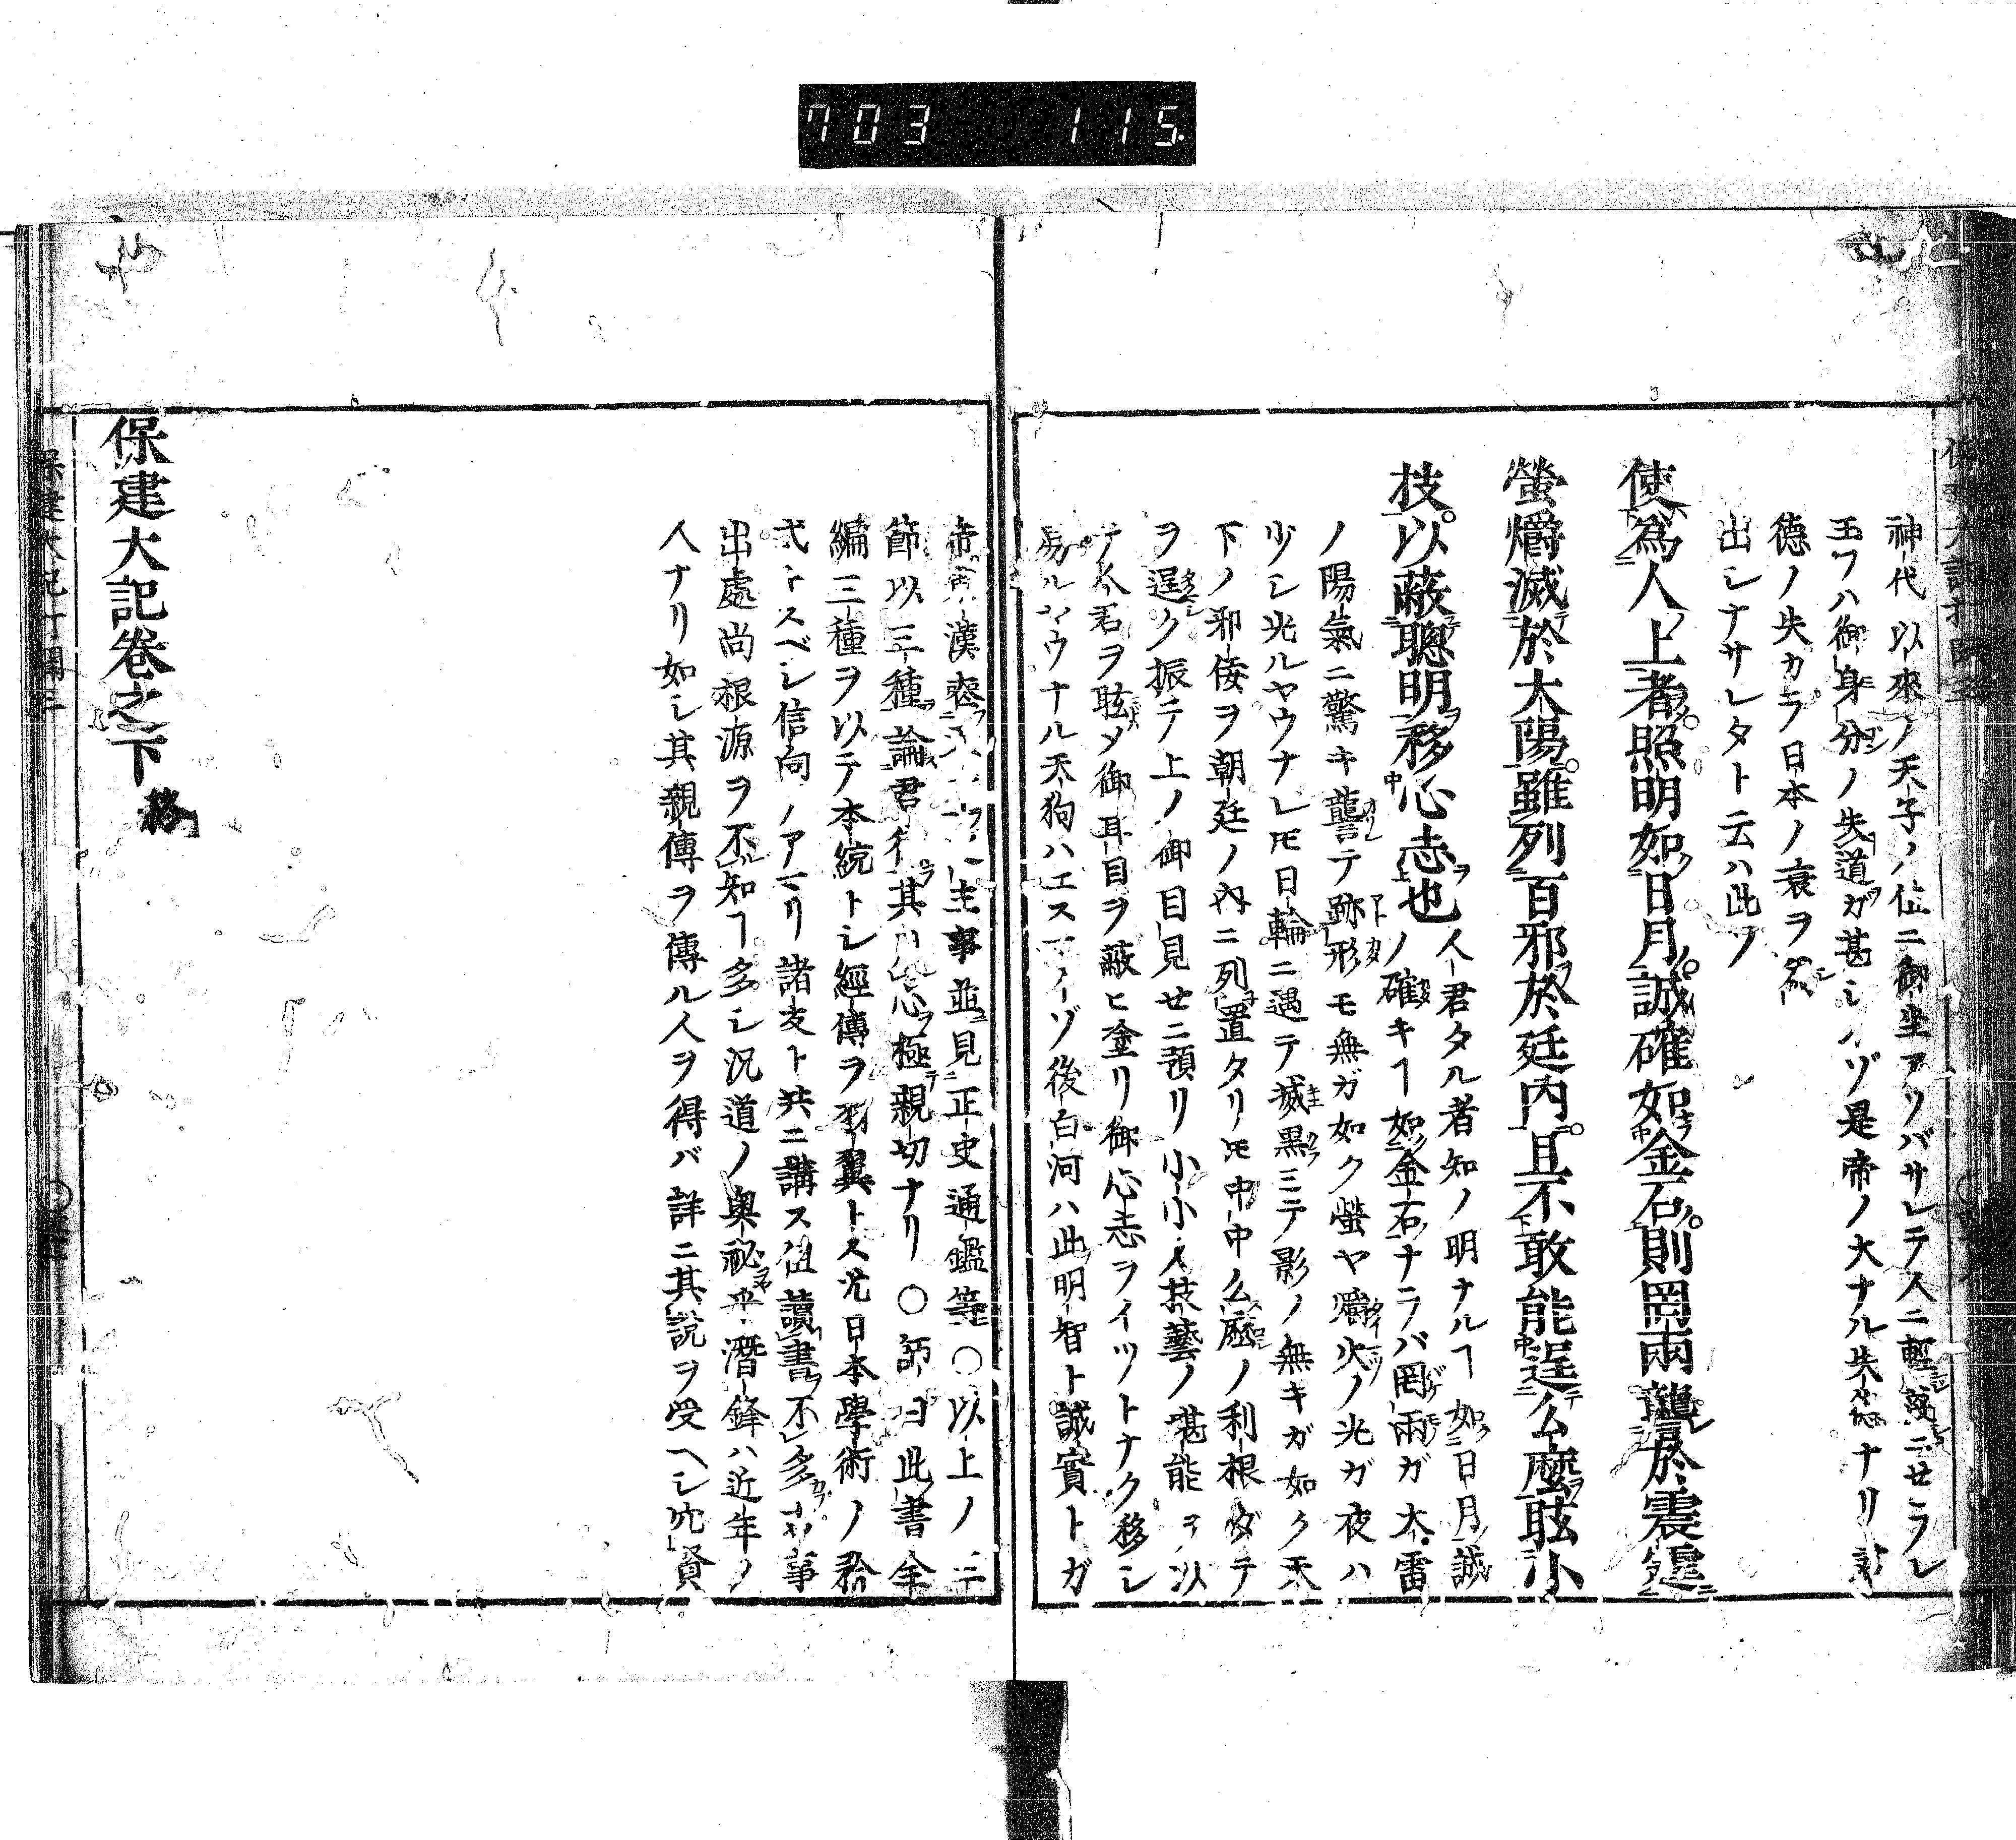 703 115
神代以來ノ天子ノ位ニ御坐アリバサレテスニ輕ニセラレ
玉フハ御身分ノ失道ガ甚シノヅ是帝ノ大ナル失德ナリ
德ノ失カラ日本ノ衰ヲ
出シナサレタト云ハ此ノ
使為人上者照明如日月誠確如金石則罔兩讋於震霆
螢爝滅於太陽雖列百邪於廷内且不敢能逞幺麼眩小
技以蔽聰明移心志也
人君タル者知ノ明ナルヿ如日月誠
ノ確キヿ如金石ナラバ罔兩ガ大雷
ノ陽氣ニ驚キ讋テ跡形モ無ガ如ク螢ヤ爝火ノ光ガ夜ハ
少シ光ルヤウナレ𪜈日輪ニ遇テ滅黒ミテ影ノ無キガ如ク天
下ノ邪倭ヲ朝廷ノ内ニ列置タリ𪜈中中幺麼ノ利根ダテ
ヲ逞ク振テ上ノ御目見セニ預リ小小ノ技藝ノ堪能ヲ以
テ人君ヲ眩メ御耳目ヲ蔽ヒ塗リ御心志ヲイツトナク移シ
易ルヤウナル天狗ハエス ゾ後白河ハ此明智ト誠實トガ
主事並見正史通鑑等○以上ノ三
節以三種論君 其心極親切ナリ○師曰此書全
編三種ヲ以テ本統トシ經傳ヲ羽翼トス光日本學術ノ君
式トスベシ信向ノアマリ諸友ト共ニ講ス但讀書不多故事
出處尚根源ヲ不知ヿ多シ况道ノ奥祕乎潛鋒ハ近年ノ
人ナリ如シ其親傳ヲ傳ル人ヲ得バ詳ニ其説ヲ受ヘシ
保建大記卷之下終